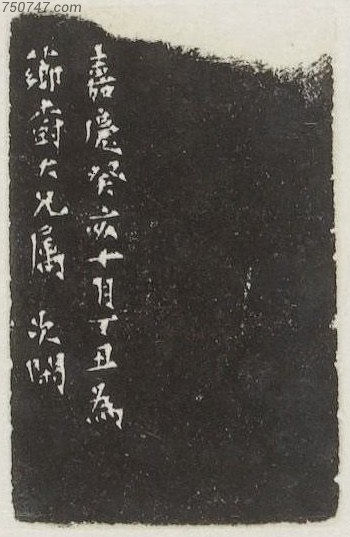 750747.com
嘉慶癸亥十月丁丑為
鄉大兄属 次閑